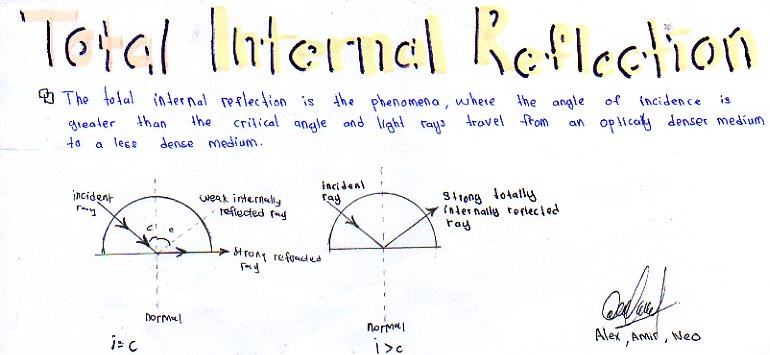 Total Internal Reflection
The total internal reflection is the phenomena, where the angle of incidence is
greater than the critical angle and light rays travel from an optically denser medium
to a less dense medium.
incident
ray
weak internally
reflected ray
c
e
strong refracted
ray
normal
i = c
incident
ray
strong totally
internally reflected
ray
normal
i > c
Alex, Amir, Neo